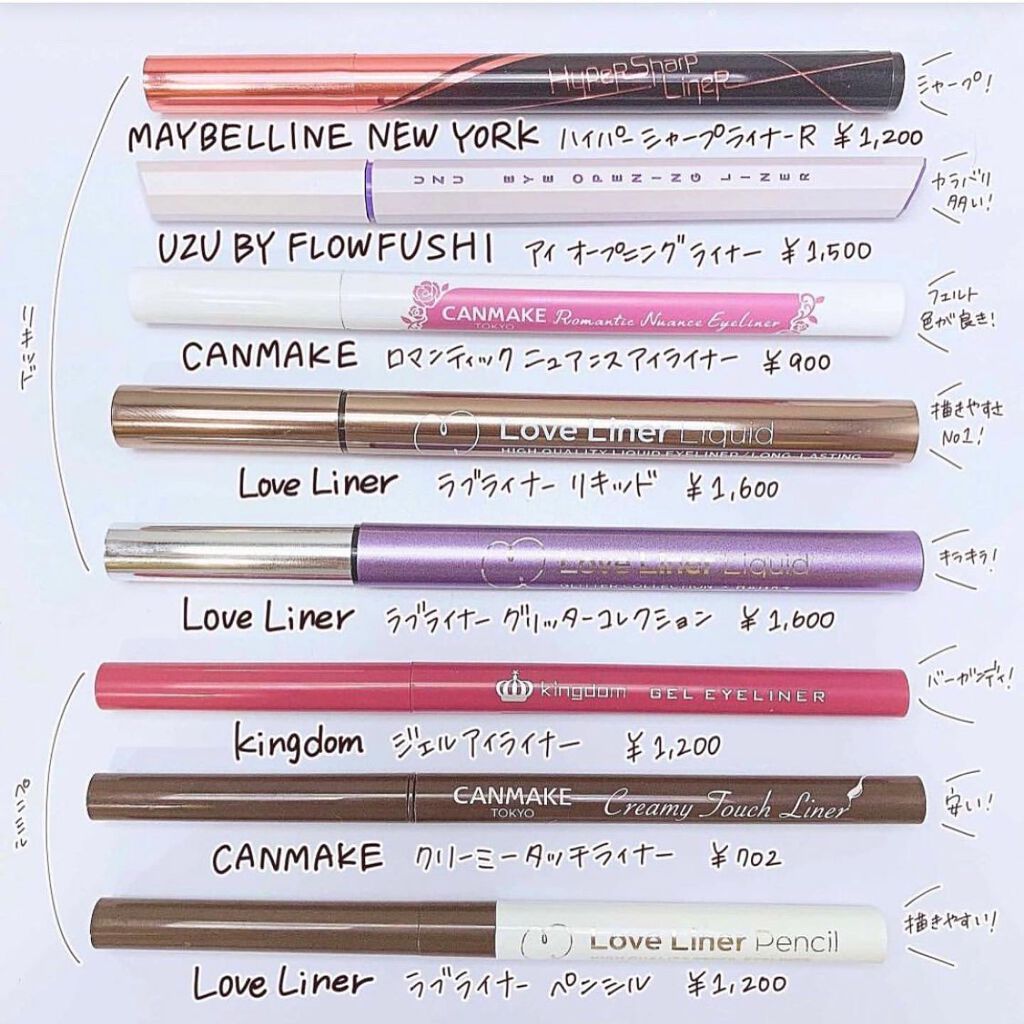 HYPERSHARP
LINER
シャープ!
MAYBELLINE NEW YORK ハイパーシャープライナーR ¥1,200
UZU EYE OPENING LINER
カラバリ
多い!
UZU BY FLOWFUSHI アイ オープニングライナー ¥1,500
リキッド
CANMAKE Romantic Nuance Eyeliner
TOKYO
フェルト
色が良き!
CANMAKE ロマンティック ニュアンスアイライナー ¥900
Love Liner Liquid
HIGH QUALITY LIQUID EYELINER / LONG-LASTING
描きやすさ
No1!
Love Liner ラブライナー リキッド ¥1,600
Love Liner Liquid
キラキラ!
Love Liner ラブライナー グリッターコレクション ¥1,600
kingdom GEL EYELINER
バーガンディ!
kingdom ジェルアイライナー ¥1,200
ペンシル
CANMAKE Creamy Touch Liner
TOKYO
安い!
CANMAKE クリーミータッチライナー ¥702
Love Liner Pencil
描きやすい!
Love Liner ラブライナー ペンシル ¥1,200